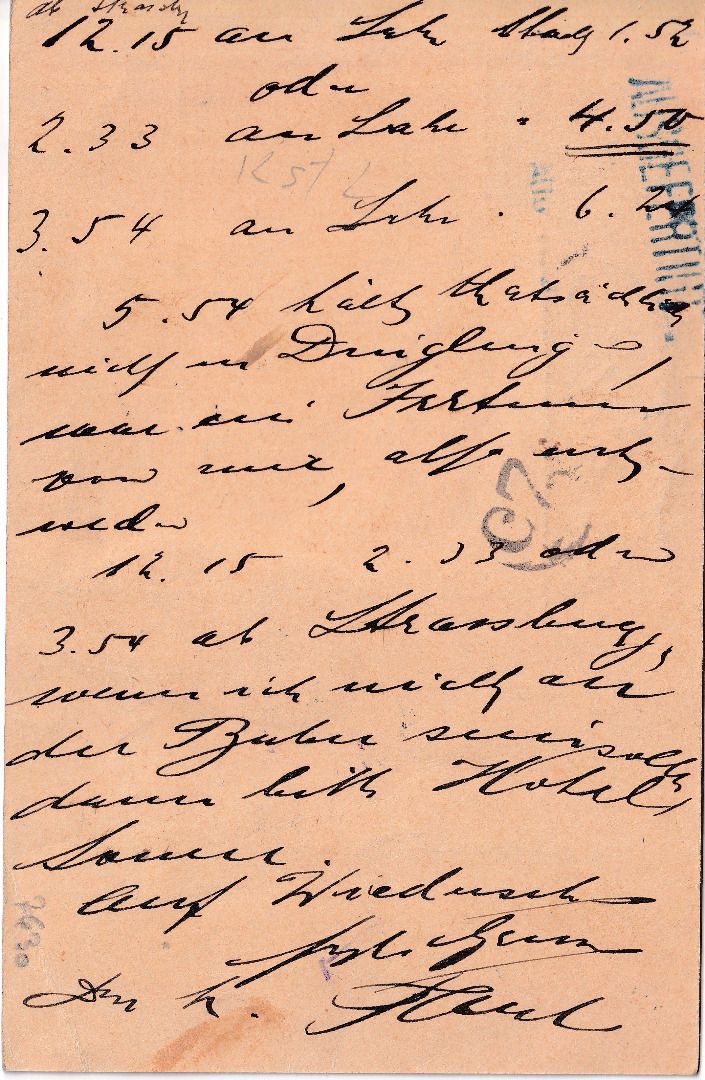 ab Strassbg
12.15 an Lahr Stadt 1.52
oder
2.33 an Lahr " 4.50
3.54 an Lahr " 6.
5.54 hält thatsächlich
nicht in Dinglingen,
war ein Irrtum
von mir, also ent-
weder
12.15 2.33 oder
3.54 ab Strassburg,
wenn ich nicht an
der Bahn sein sollte
dann bitte Hotel
Sonne.
Auf Wiedersehen
Gruss
AUSGEFERTIGT.